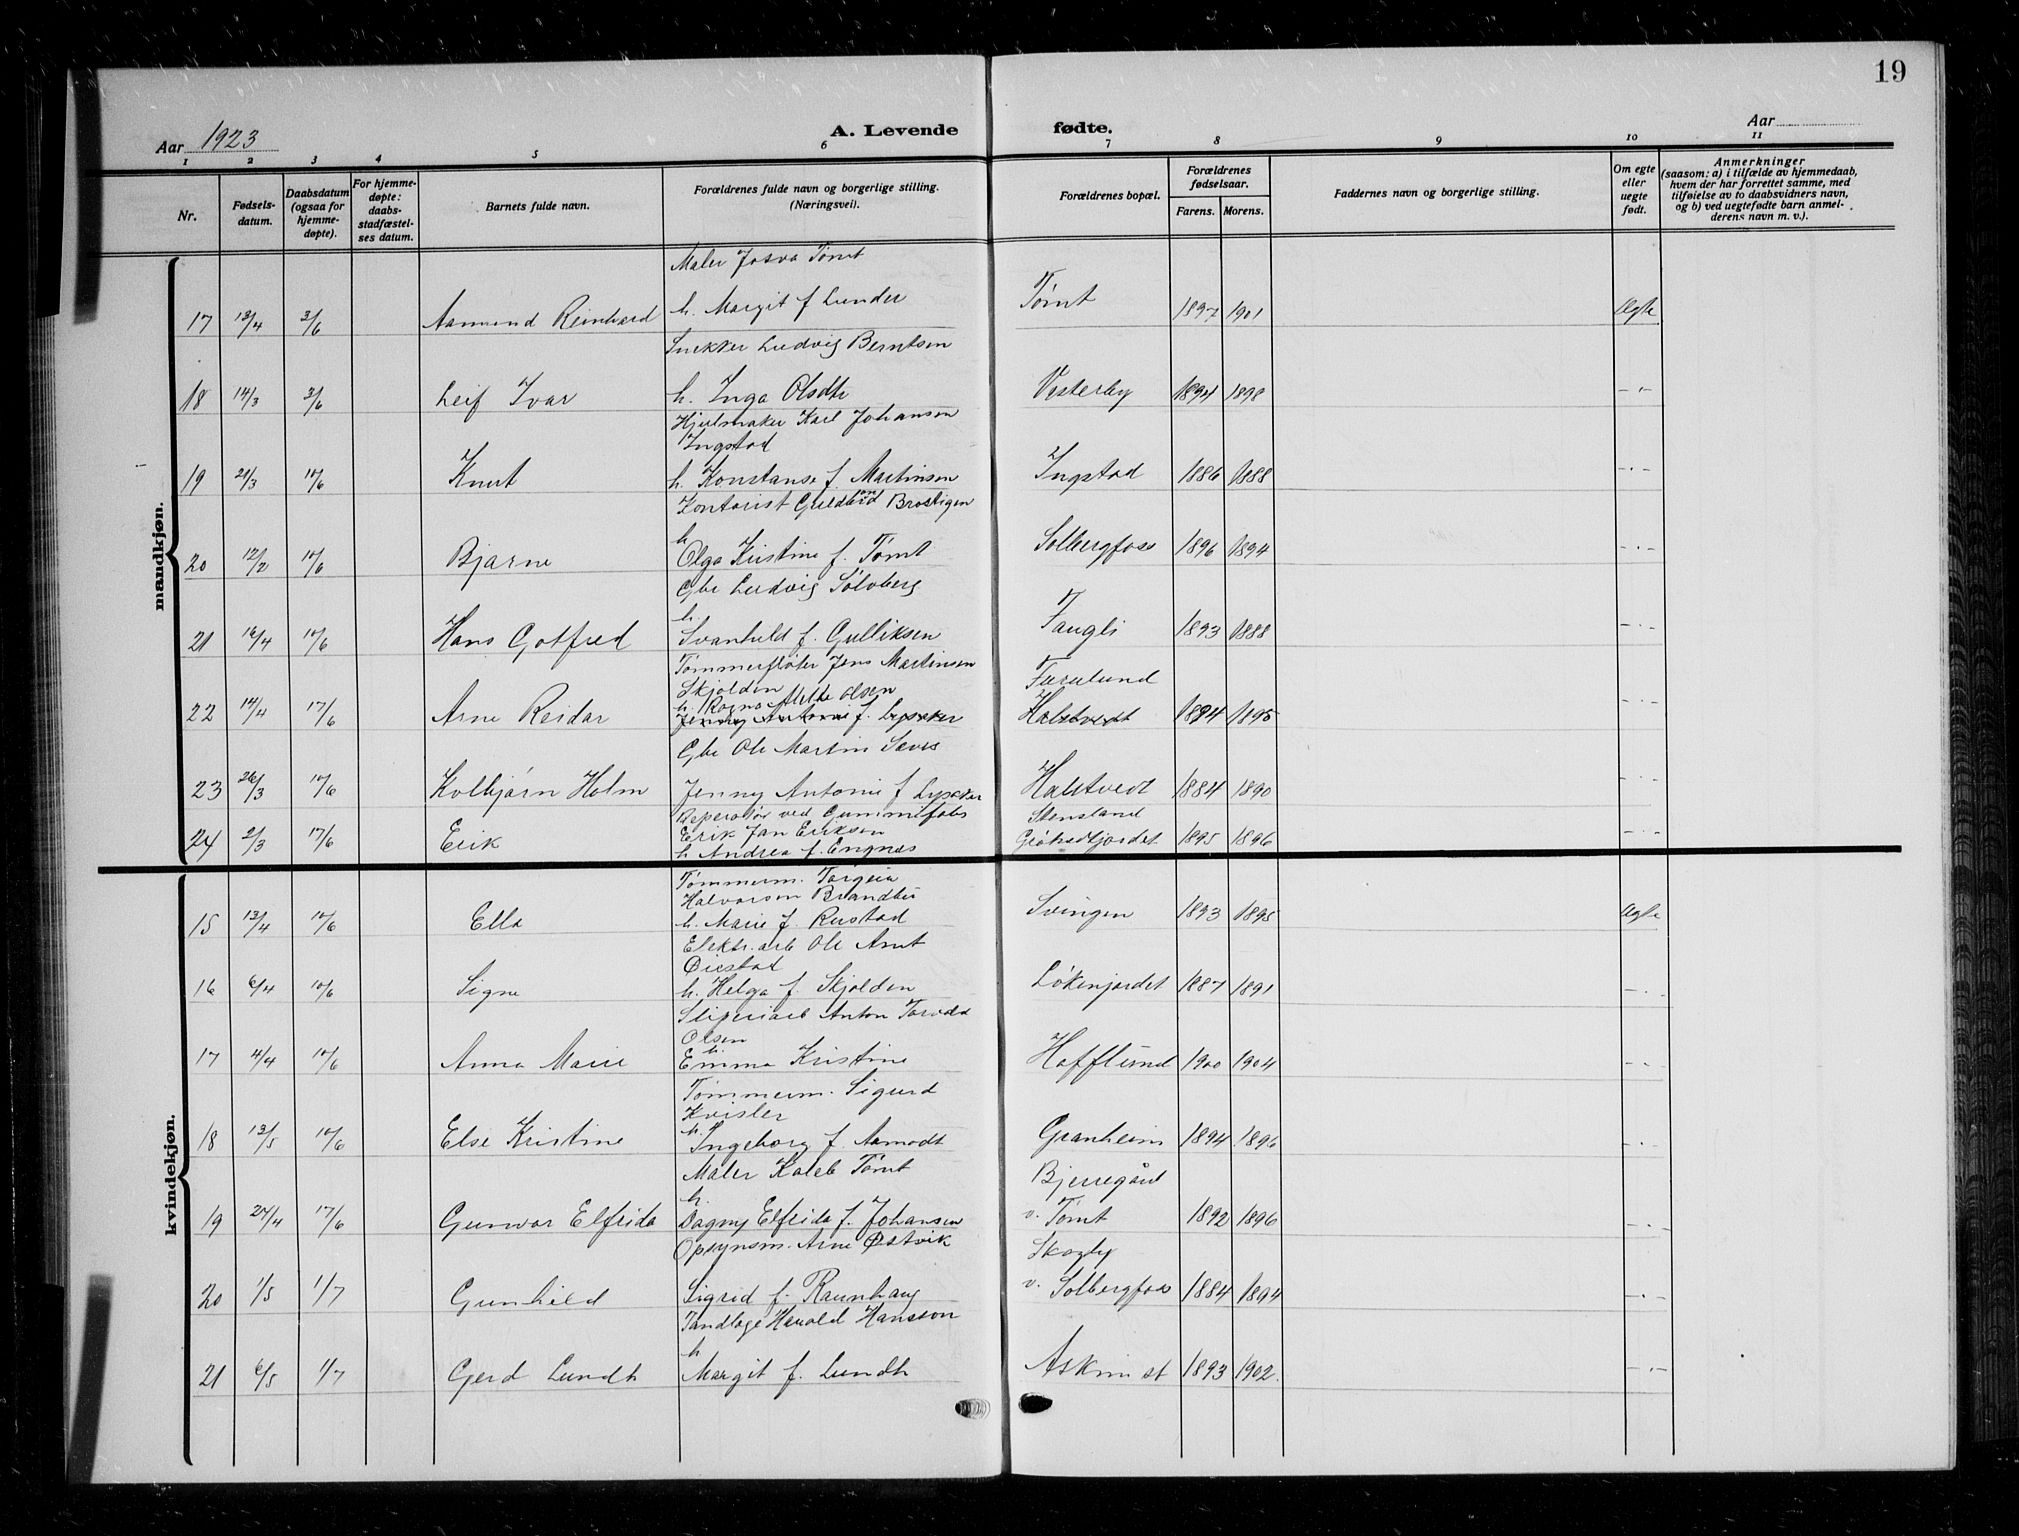 19
Aar 1923
A. Levende
fødte.
Aar
1 2 3 4 5 6 7 8 9 10 11
Nr.
Fødsels-
datum.
Daabsdatum
(ogsaa for
hjemme-
døpte).
For hjemme-
døpte:
daabs-
stadfæstel-
ses datum.
Barnets fulde navn.
Forældrenes fulde navn og borgerlige stilling.
(Næringsvei).
Forældrenes bopæl.
Forældrenes
fødselsaar.
Farens. Morens.
Faddernes navn og borgerlige stilling.
Om egte
eller
uegte
født.
Anmerkninger
(saasom: a) i tilfælde av hjemmedaab,
hvem der har forrettet samme, med
tilføielse av to daabsvidners navn,
og b) ved uegtefødte barn anmel-
derens navn m. v.).
mandkjøn.
Maler Josva Tømt
17 13/4 3/6 Aamund Reinhard h. Margit f. Lunder Tømt 1897 1901 Ægte
Snekker Ludvig Berntsen
18 14/3 3/6 Leif Ivar h. Inga Olsdtr Vesterby 1894 1898 - " -
Hjulmaker Karl Johansen
Ingstad
19 21/3 10/6 Knut h. Konstanse f. Martinsen Ingstad 1886 1888 - " -
Kontorist Guldbrand Brostigen
h.
20 12/2 10/6 Bjarne Olga Kristine f. Tømt Solbergfoss 1896 1894 - " -
Gbr Ludvig Sølvberg
h.
21 16/4 10/6 Hans Gotfred Svanhild f. Gulliksen Faugli 1893 1888 - " -
Tømmerfløter Jens Martinsen
Skjolden Furulund
h. Ragna Milde Olsen
22 14/4 17/6 Arne Reidar Jenny Antonie f. Lysaker Halstvedt 1894 1895 - " -
Gbr Ole Martin Sæves
23 26/3 10/6 Kolbjørn Holm Jenny Antonie f. Lysaker Halstvedt 1884 1890 - " -
Reperatør ved Gummifabr Stensland
24 2/3 17/6 Erik Erik Jan Eriksen Grøkedtjordet 1895 1896 - " -
h. Andrea f. Engnæs
kvindekjøn.
Tømmerm. Torgeir
Halvorsen Brandbu
15 13/4 10/6 Ella h. Marie f. Rustad Svingen 1893 1895 Ægte
Elektr. arb Ole Arnt
Øiestad
16 6/4 10/6 Signe h. Helga f. Skjolden Løkenjordet 1887 1891 - " -
Sliperiarb Anton Torvald
Olsen
h.
17 4/4 10/6 Anna Marie Emma Kristine Hafflund 1900 1904 - " -
Tømmerm. Sigurd
Kvisler
h.
18 13/5 10/6 Else Kristine Ingeborg f. Aamodt Granheim 1894 1896 - " -
Maler Kaleb Tømt Bjerregård
h.
19 24/4 17/6 Gunvor Elfrida Dagny Elfrida f. Johansen v. Tømt 1892 1896 - " -
Opsynsm. Arne Østvik Skogly
20 1/5 1/7 Gunhild Sigrid f. Raunhaug v. Solbergfoss 1884 1894 - " -
Tandlæge Harald Hansson
h
21 6/5 1/7 Gerd Lundh Margit f. Lundh Askim st 1893 1902. - " -